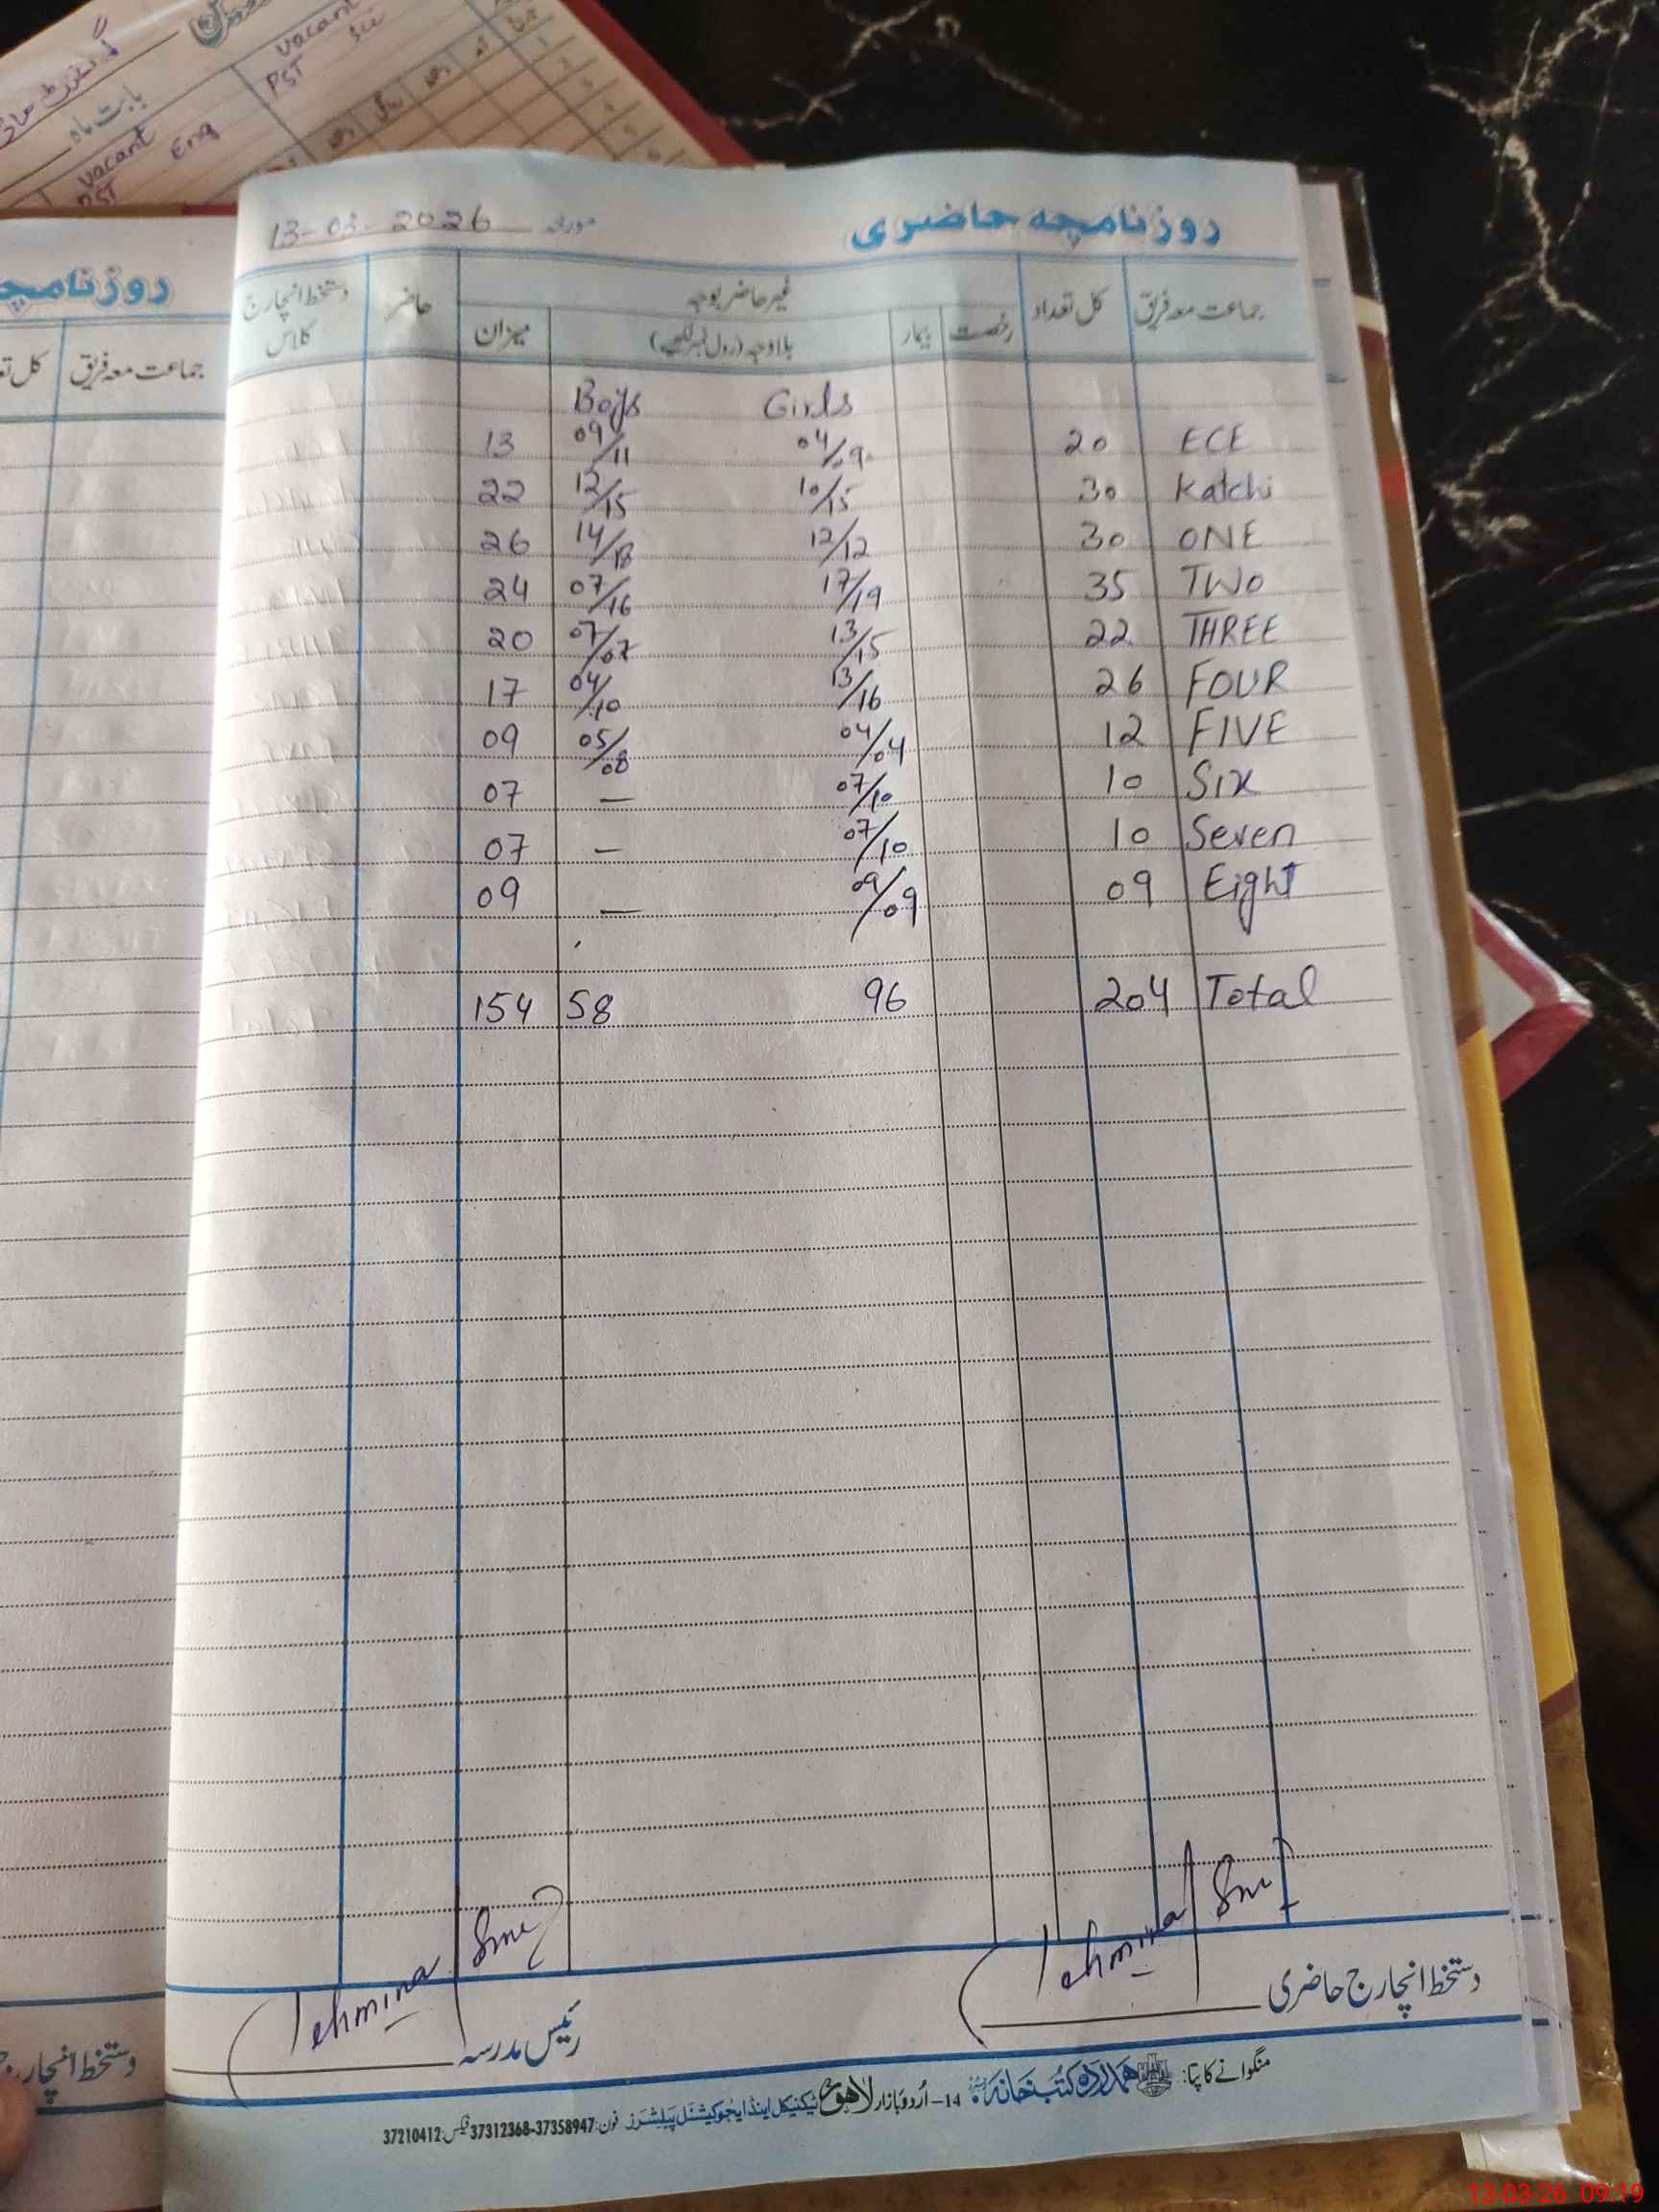 vacant
PST
vacant
PST
Eng
بابت ماہ
روزنامچہ حاضری
مورخہ 13-03-2026
جماعت معہ فریق
کل تعداد
غیر حاضر بوجہ
رخصت
بیمار
بلاوجہ (رول نمبر لکھیے)
میزان
حاضر
دستخط انچارج کلاس
Boys Girls
13 09/11 04/9 20 ECE
22 12/15 10/15 30 Katchi
26 14/18 12/12 30 ONE
24 07/16 17/19 35 TWO
20 07/07 13/15 22 THREE
17 04/10 13/16 26 FOUR
09 05/08 04/04 12 FIVE
07 — 07/10 10 SIX
07 — 07/10 10 Seven
09 — 09/09 09 Eight
154 58 96 204 Total
Tehmina
Tehmina
دستخط انچارج حاضری
رئیس مدرسہ
منگوانے کا پتا: ہمدرد کتب خانہ 14-اُردو بازار لاہور ٹیکنیکل اینڈ ایجوکیشنل پبلشرز فون: 37312368-37358947 فیکس: 37210412
روزنامچہ
جماعت معہ فریق
دستخط انچارج
13-03-26 09:19